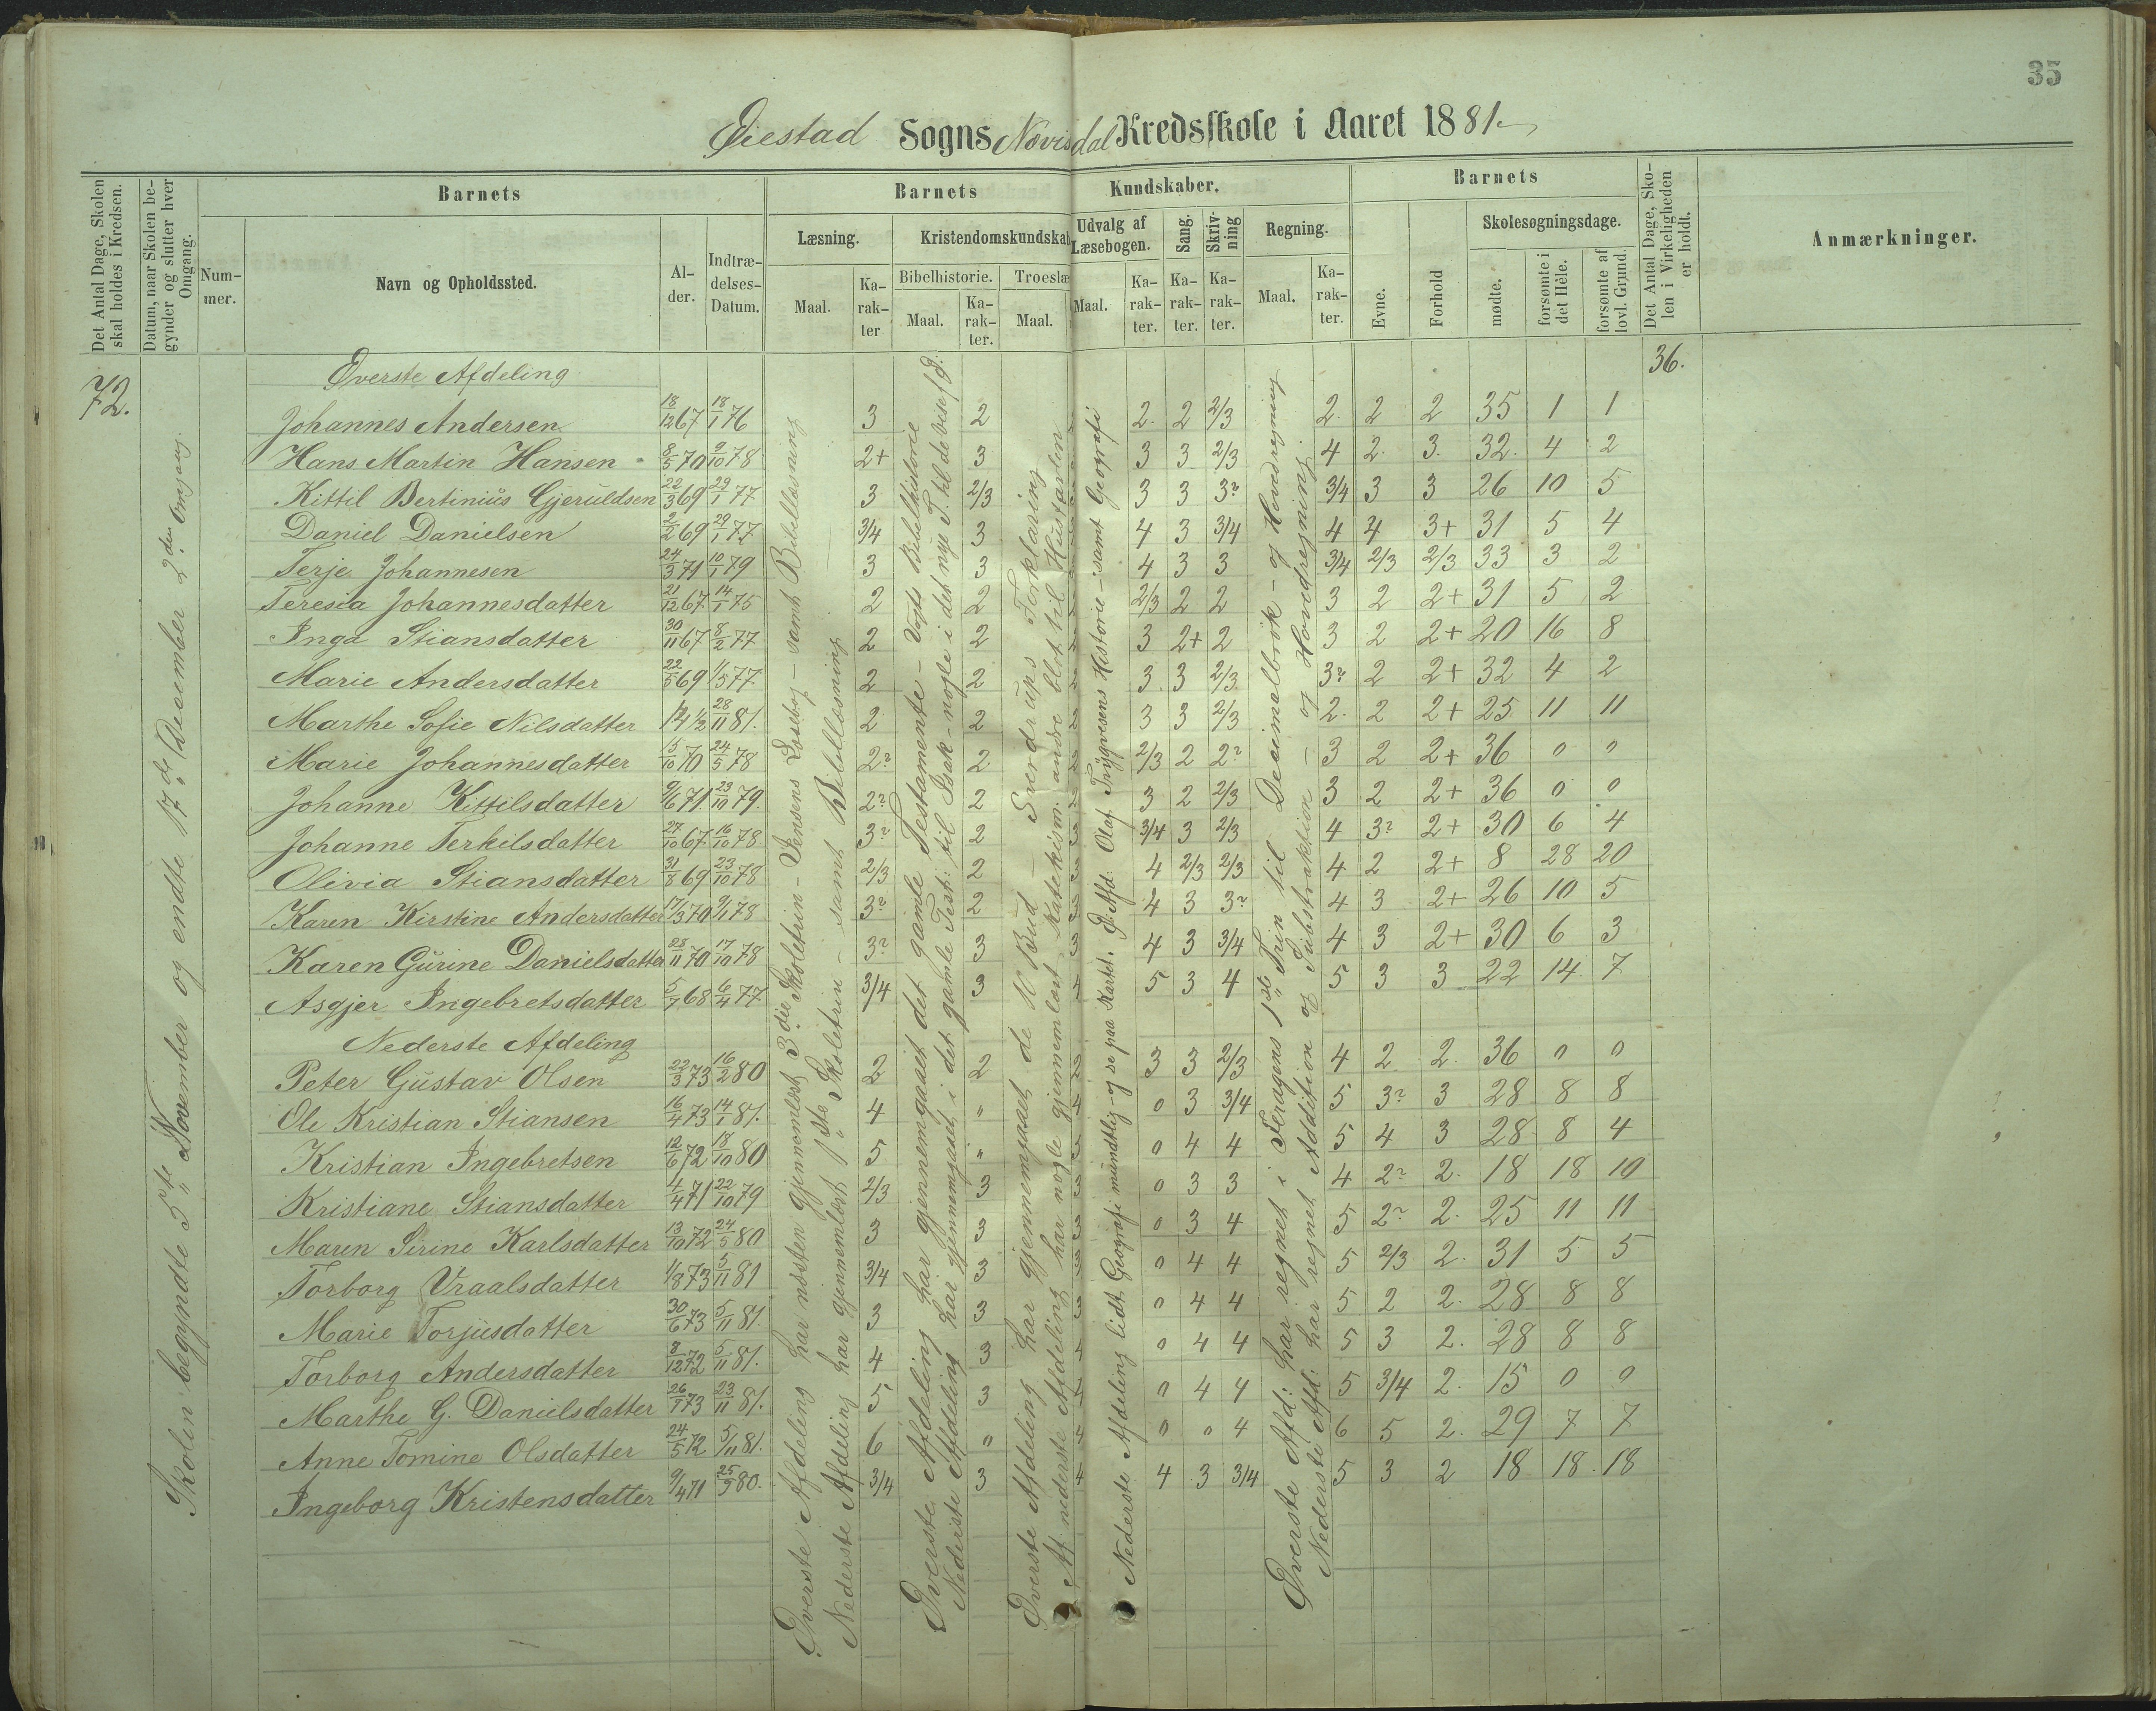 35
Øiestad Sogns Nævisdal Kredsskole i Aaret 1881
Det Antal Dage, Skolen skal holdes i Kredsen.
Datum, naar Skolen begynder og slutter hver Omgang.
Barnets
Nummer.
Navn og Opholdssted.
Alder.
Indtrædelses-Datum.
Barnets Kundskaber.
Læsning.
Maal.
Karakter
Kristendomskundskab
Bibelhistorie.
Maal.
Karakter.
Troeslæ
Maal.
Udvalg af Læsebogen.
Maal.
Karakter.
Sang.
Karakter.
Skrivning
Karakter.
Regning.
Maal.
Karakter.
Barnets
Evne.
Forhold
Skolesøgningsdage.
mødte.
forsømte i det Hele.
forsømte af lovl. Grund.
Det Antal Dage, Skolen i Virkeligheden er holdt.
Anmærkninger.
72.
36.
Skolen begyndte 5te November og endte 17de December 2den Omgang.
Øverste Afdeling
Johannes Andersen 18/12 67 18/1 76 3 2 2. 2 2/3 2. 2 2 35 1 1
Hans Martin Hansen 8/5 70 9/10 78 2+ 3 3 3 2/3 4 2. 3. 32. 4 2
Kittil Bertinius Gjeruldsen 22/3 69 29/1 77 3 2/3 3 3 3? 3/4 3 3 26 10 5
Daniel Danielsen 2/2 69 29/1 77 3/4 3 4 3 3/4 4 4 3+ 31 5 4
Terje Johannesen 24/3 71 10/1 79 3 3 4 3 3 3/4 2/3 2/3 33 3 2
Teresia Johannesdatter 21/12 67 14/1 75 2 2 2/3 2 2 3 2 2+ 31 5 2
Inga Stiansdatter 30/11 67 8/2 77 2 2 3 2+ 2 3 2 2+ 20 16 8
Marie Andersdatter 22/5 69 1/5 77 2 2 3 3 2/3 3? 2 2+ 32 4 2
Marthe Sofie Nilsdatter 14½ 28/11 81. 2 2 3 3 2/3 2. 2 2+ 25 11 11
Marie Johannesdatter 5/10 70 24/5 78 2? 2 2/3 2 2? 3 2 2+ 36 0 0
Johanne Kittilsdatter 9/6 71 23/10 79. 2? 2 3 2 2/3 3 2 2+ 36 0 0
Johanne Terkilsdatter 27/10 67 16/10 78 3? 2 3/4 3 2/3 4 3? 2+ 30 6 4
Olivia Stiansdatter 31/8 69 23/10 78 2/3 2 4 2/3 2/3 4 2 2+ 8 28 20
Karen Kirstine Andersdatter 17/3 70 9/1 78 3? 2 4 3 3? 4 3 2+ 26 10 5
Karen Gurine Danielsdatter 28/11 70 17/10 78 3? 3 4 3 3/4 4 3 2+ 30 6 3
Asgjer Ingebretsdatter 5/7 68 6/4 77 3/4 3 5 3 4 5 3 3 22 14 7
Nederste Afdeling
Peter Gustav Olsen 22/3 73 16/2 80 2 2 3 3 2/3 4 2 2. 36 0 0
Ole Kristian Stiansen 16/4 73 14/1 81. 4 " 0 3 3/4 5 3? 3 28 8 8
Kristian Ingebretsen 12/6 72 18/10 80 5 " 0 4 4 5 4 3 28 8 4
Kristiane Stiansdatter 4/4 71 22/10 79 2/3 3 0 3 3 4 2? 2. 18 18 10
Maren Sirine Karlsdatter 13/10 72 24/5 80 3 3 0 3 4 5 2? 2. 25 11 11
Torborg Vraalsdatter 1/8 73 5/11 81 3/4 3 0 4 4 5 2/3 2. 31 5 5
Marie Torjusdatter 30/6 73 5/11 81. 3 3 0 4 4 5 2 2. 28 8 8
Torborg Andersdatter 8/12 72 5/11 81. 4 3 0 4 4 5 3 2. 28 8 8
Marthe G. Danielsdatter 26/1 73 23/11 81. 5 3 0 4 4 5 3/4 2. 15 0 0
Anne Tomine Olsdatter 24/5 72 5/11 81. 6 " 0 0 4 6 5 2. 29 7 7
Ingeborg Kristensdatter 9/4 71 25/9 80. 3/4 3 4 3 3/4 5 3 2 18 18 18
Øverste Afdeling har næsten gjennemlæst 3die Skoletrin - Jensens Læsebog - samt Bibellæsning
Nederste Afdeling har gjennemlæst 1ste Skoletrin - samt Bibellæsning
Øverste Afdeling har gjennemgaaet det gamle Testamente - Vogts Bibelhistorie
Nederste Afdeling har gjennemgaaet i det gamle Test: til Isak - nogle i det nye T. til de vise f Ø:
Øverste Afdeling har gjennemgaaet de 10 Bud - Sverdrups Forklaring
Af nederste Afdeling har nogle gjennemlæst Katekism. andre blot til Hustavlen
Ø. Afd: Olaf Trygvesens Historie - samt Geografi
Nederste Afdeling lidt Geografi mundtlig og se paa Kartet.
Øverste Afd: har regnet i Feragens 1ste Trin til Decimalbrøk - og Hovedregning
Nederste Afd: har regnet Addition og Subtraktion - og Hovedregning